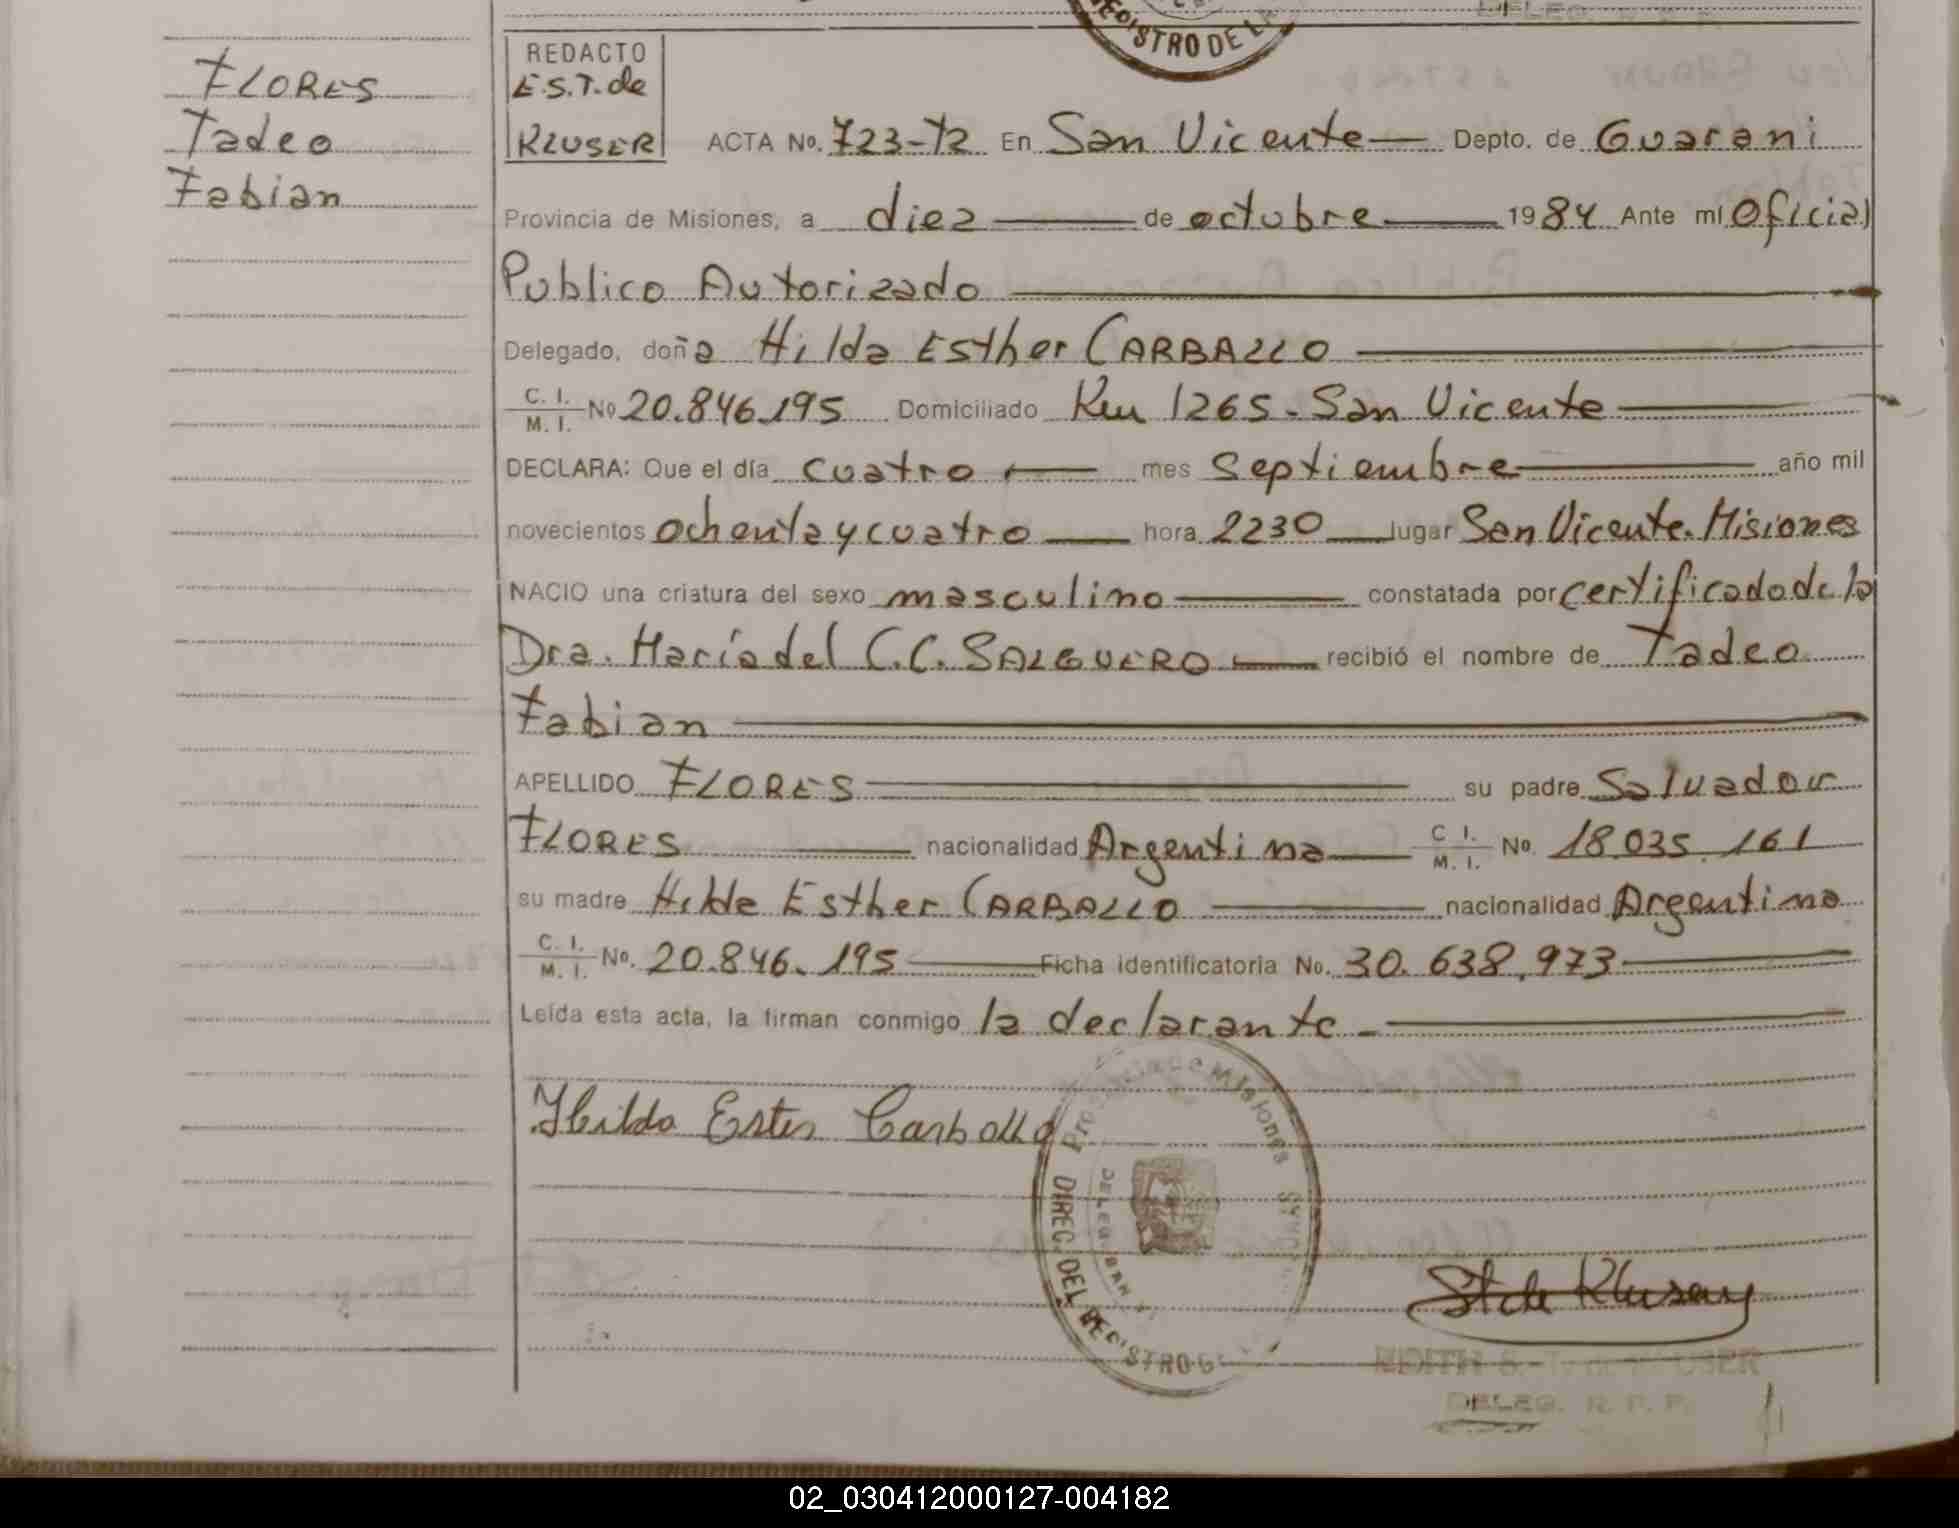 REGISTRO DE LA
FLORES
Tadeo
Fabian
REDACTO
E.S.T. de
KLUSER
ACTA No. 723-72 En San Vicente Depto. de Guarani
Provincia de Misiones, a diez de octubre 1984 Ante mí Oficial
Publico Autorizado
Delegado, doña Hilda Esther CARBALLO
C. I. / M. I. No 20.846.195 Domiciliado Km 1265 - San Vicente
DECLARA: Que el día cuatro mes Septiembre año mil
novecientos ochenta y cuatro hora 2230 lugar San Vicente. Misiones
NACIO una criatura del sexo masculino constatada por certificado de la
Dra. María del C.C. SALGUERO recibió el nombre de Tadeo
Fabian
APELLIDO FLORES su padre Salvador
FLORES nacionalidad Argentina C I. / M. I. No. 18.035.161
su madre Hilda Esther CARBALLO nacionalidad Argentina
C. I. / M. I. No. 20.846.195 Ficha identificatoria No. 30.638.973
Leída esta acta, la firman conmigo la declarante -
Hilda Ester Carballo
Provincia de Misiones
DIREC. DEL REGISTRO
St de Kluser
EDITH S. T. de KLUSER
DELEG. R. P. P.
02_030412000127-004182